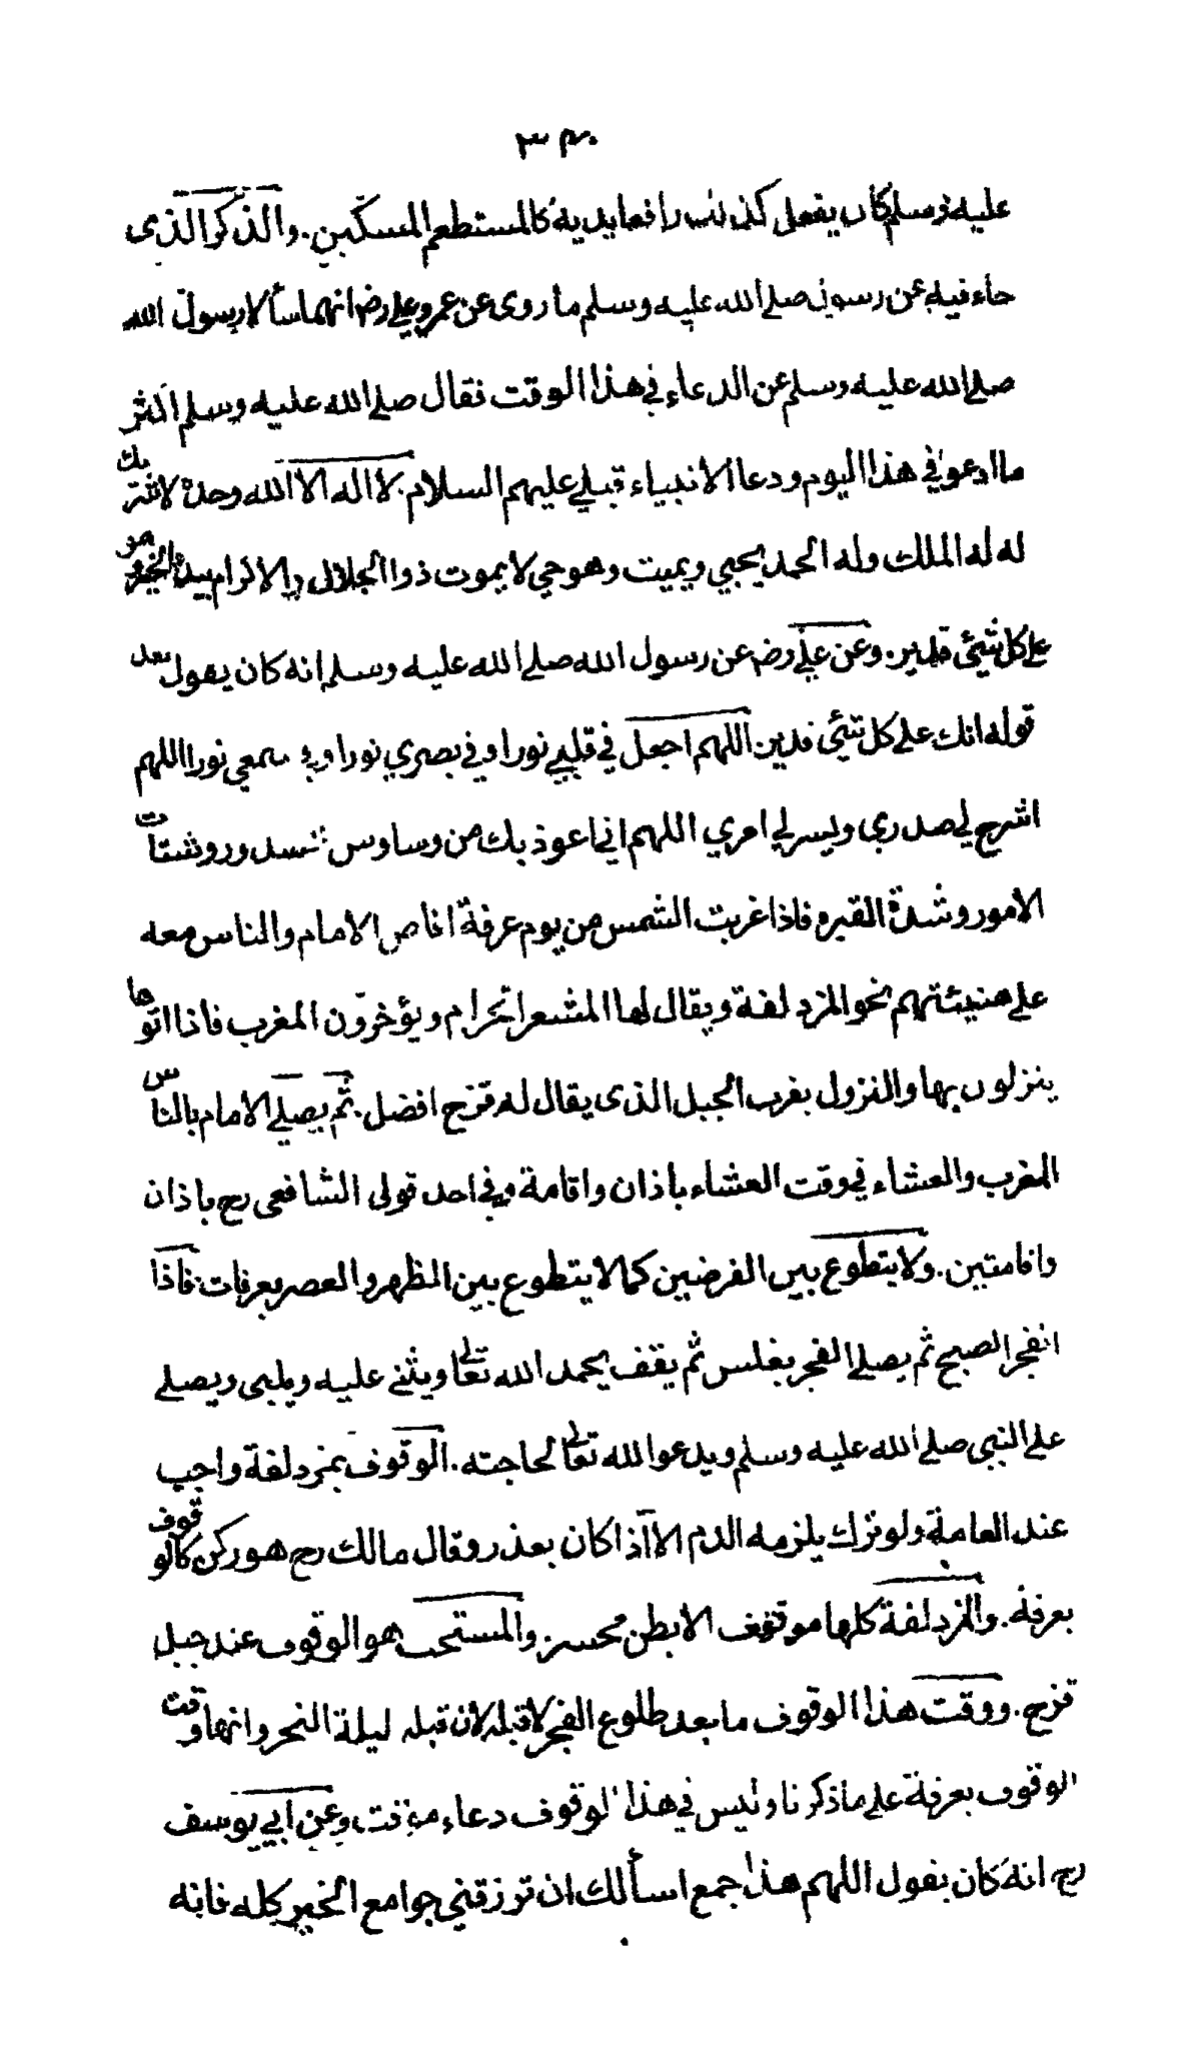 ٣٣٠
عليه وسلم كان يفعل كذلك رافعا يديه كالمستطعم المسكين. والذكر الذى
جاء فيه عن رسول صلى الله عليه وسلم ما روى عن عمر وعلى رض انهما سألا رسول الله
صلى الله عليه وسلم عن الدعاء في هذا الوقت فقال صلى الله عليه وسلم اكثر
ما ادعو في هذا اليوم ودعا الانبياء قبلي عليهم السلام. لا اله الا الله وحده لا شريك
له له الملك وله الحمد يحيي ويميت وهو حي لا يموت ذوا الجلال والاكرام بيده الخير وهو
على كل شيئ قدير. وعن علي رض عن رسول الله صلى الله عليه وسلم انه كان يقول بعد
قوله انك على كل شيئ قدير اللهم اجعل في قلبي نورا وفي بصري نورا وفي سمعي نورا اللهم
اشرح لي صدري ويسر لي امري اللهم اني اعوذ بك من وساوس الصدور وشتات
الامور وشدة القبر فاذا غربت الشمس من يوم عرفة افاض الامام والناس معه
على هنيئتهم نحو المزدلفة ويقال لها المشعر الحرام ويؤخرّون المغرب فاذا اتوها
ينزلون بها والنزول بقرب الجبل الذى يقال له قزح افضل. ثم يصلي الامام بالناس
المغرب والعشاء في وقت العشاء باذان واقامة وفي احد قولى الشافعى رح باذان
واقامتين. ولا يتطوع بين الفرضين كما لا يتطوع بين الظهر والعصر بعرفات فاذا
انفجر الصبح ثم يصلى الفجر بغلس ثم يقف يحمد الله تعالى ويثنى عليه ويلبى ويصلى
على النبى صلى الله عليه وسلم ويدعوا الله تعالى لحاجته. الوقوف بمزدلفة واجب
عند العامة ولو ترك يلزمه الدم الا اذا كان بعذر وقال مالك رح هو ركن كالوقوف
بعرفة. والمزدلفة كلها موقف الا بطن محسر والمستحب هو الوقوف عند جبل
قزح. ووقت هذا الوقوف ما بعد طلوع الفجر لا قبله لان قبله ليلة النحر وانها وقت
الوقوف بعرفة على ما ذكرنا وليس في هذا الوقوف دعاء موقت وعن ابي يوسف
رح انه كان يقول اللهم هذا جمع اسألك ان ترزقني جوامع الخير كله فانه